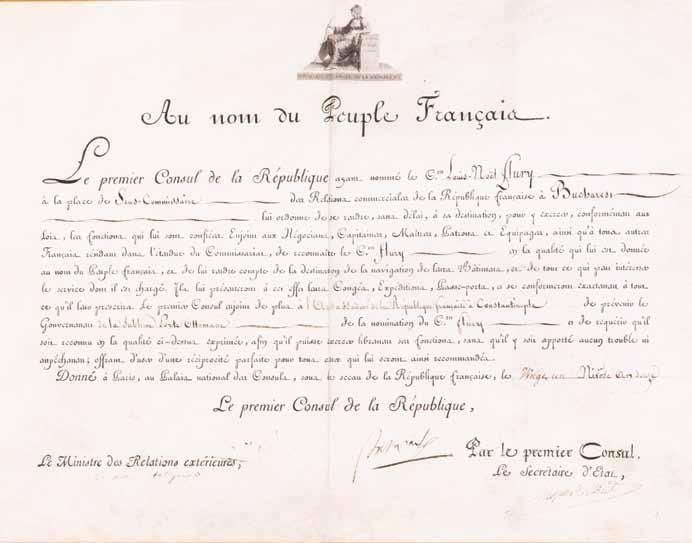 Au nom du Peuple Français.
Le premier Consul de la République ayant nommé le C.en Louis-Noël Flury
à la place de Sous-Commissaire des Relations commerciales de la République française à Bucharest
lui ordonne de se rendre, sans délai, à sa destination, pour y exercer, conformément aux
Loix, les fonctions qui lui sont confiées. Enjoint aux Négocians, Capitaines, Maîtres, Patrons et Equipages, ainsi qu'à tous autres
Français résidans dans l'étendue du Commissariat, de reconnaître le C.en Flury en la qualité qui lui est donnée
au nom du Peuple français, et de lui rendre compte de la destination de la navigation de leurs Bâtimens, et de tout ce qui peut intéresser
le service dont il est chargé. Ils lui présenteront à cet effet leurs Congés, Expéditions, Passe-ports, et se conformeront exactement à tout
ce qu'il leur prescrira. Le premier Consul enjoint de plus à l'Ambassadeur de la République française à Constantinople de prévenir le
Gouvernement de la Sublime Porte Ottomane de la nomination du C.en Flury et de requérir qu'il
soit reconnu en la qualité ci-dessus exprimée, afin qu'il puisse exercer librement ses fonctions, sans qu'il y soit apporté aucun trouble ni
empêchement; offrant d'user d'une réciprocité parfaite pour tous ceux qui lui seront ainsi recommandés.
Donné à Paris, au Palais national des Consuls, sous le sceau de la République française, le Vingt un Nivôse an douze
Le premier Consul de la République,
Le Ministre des Relations extérieures,
Par le premier Consul.
Le Secrétaire d'Etat,